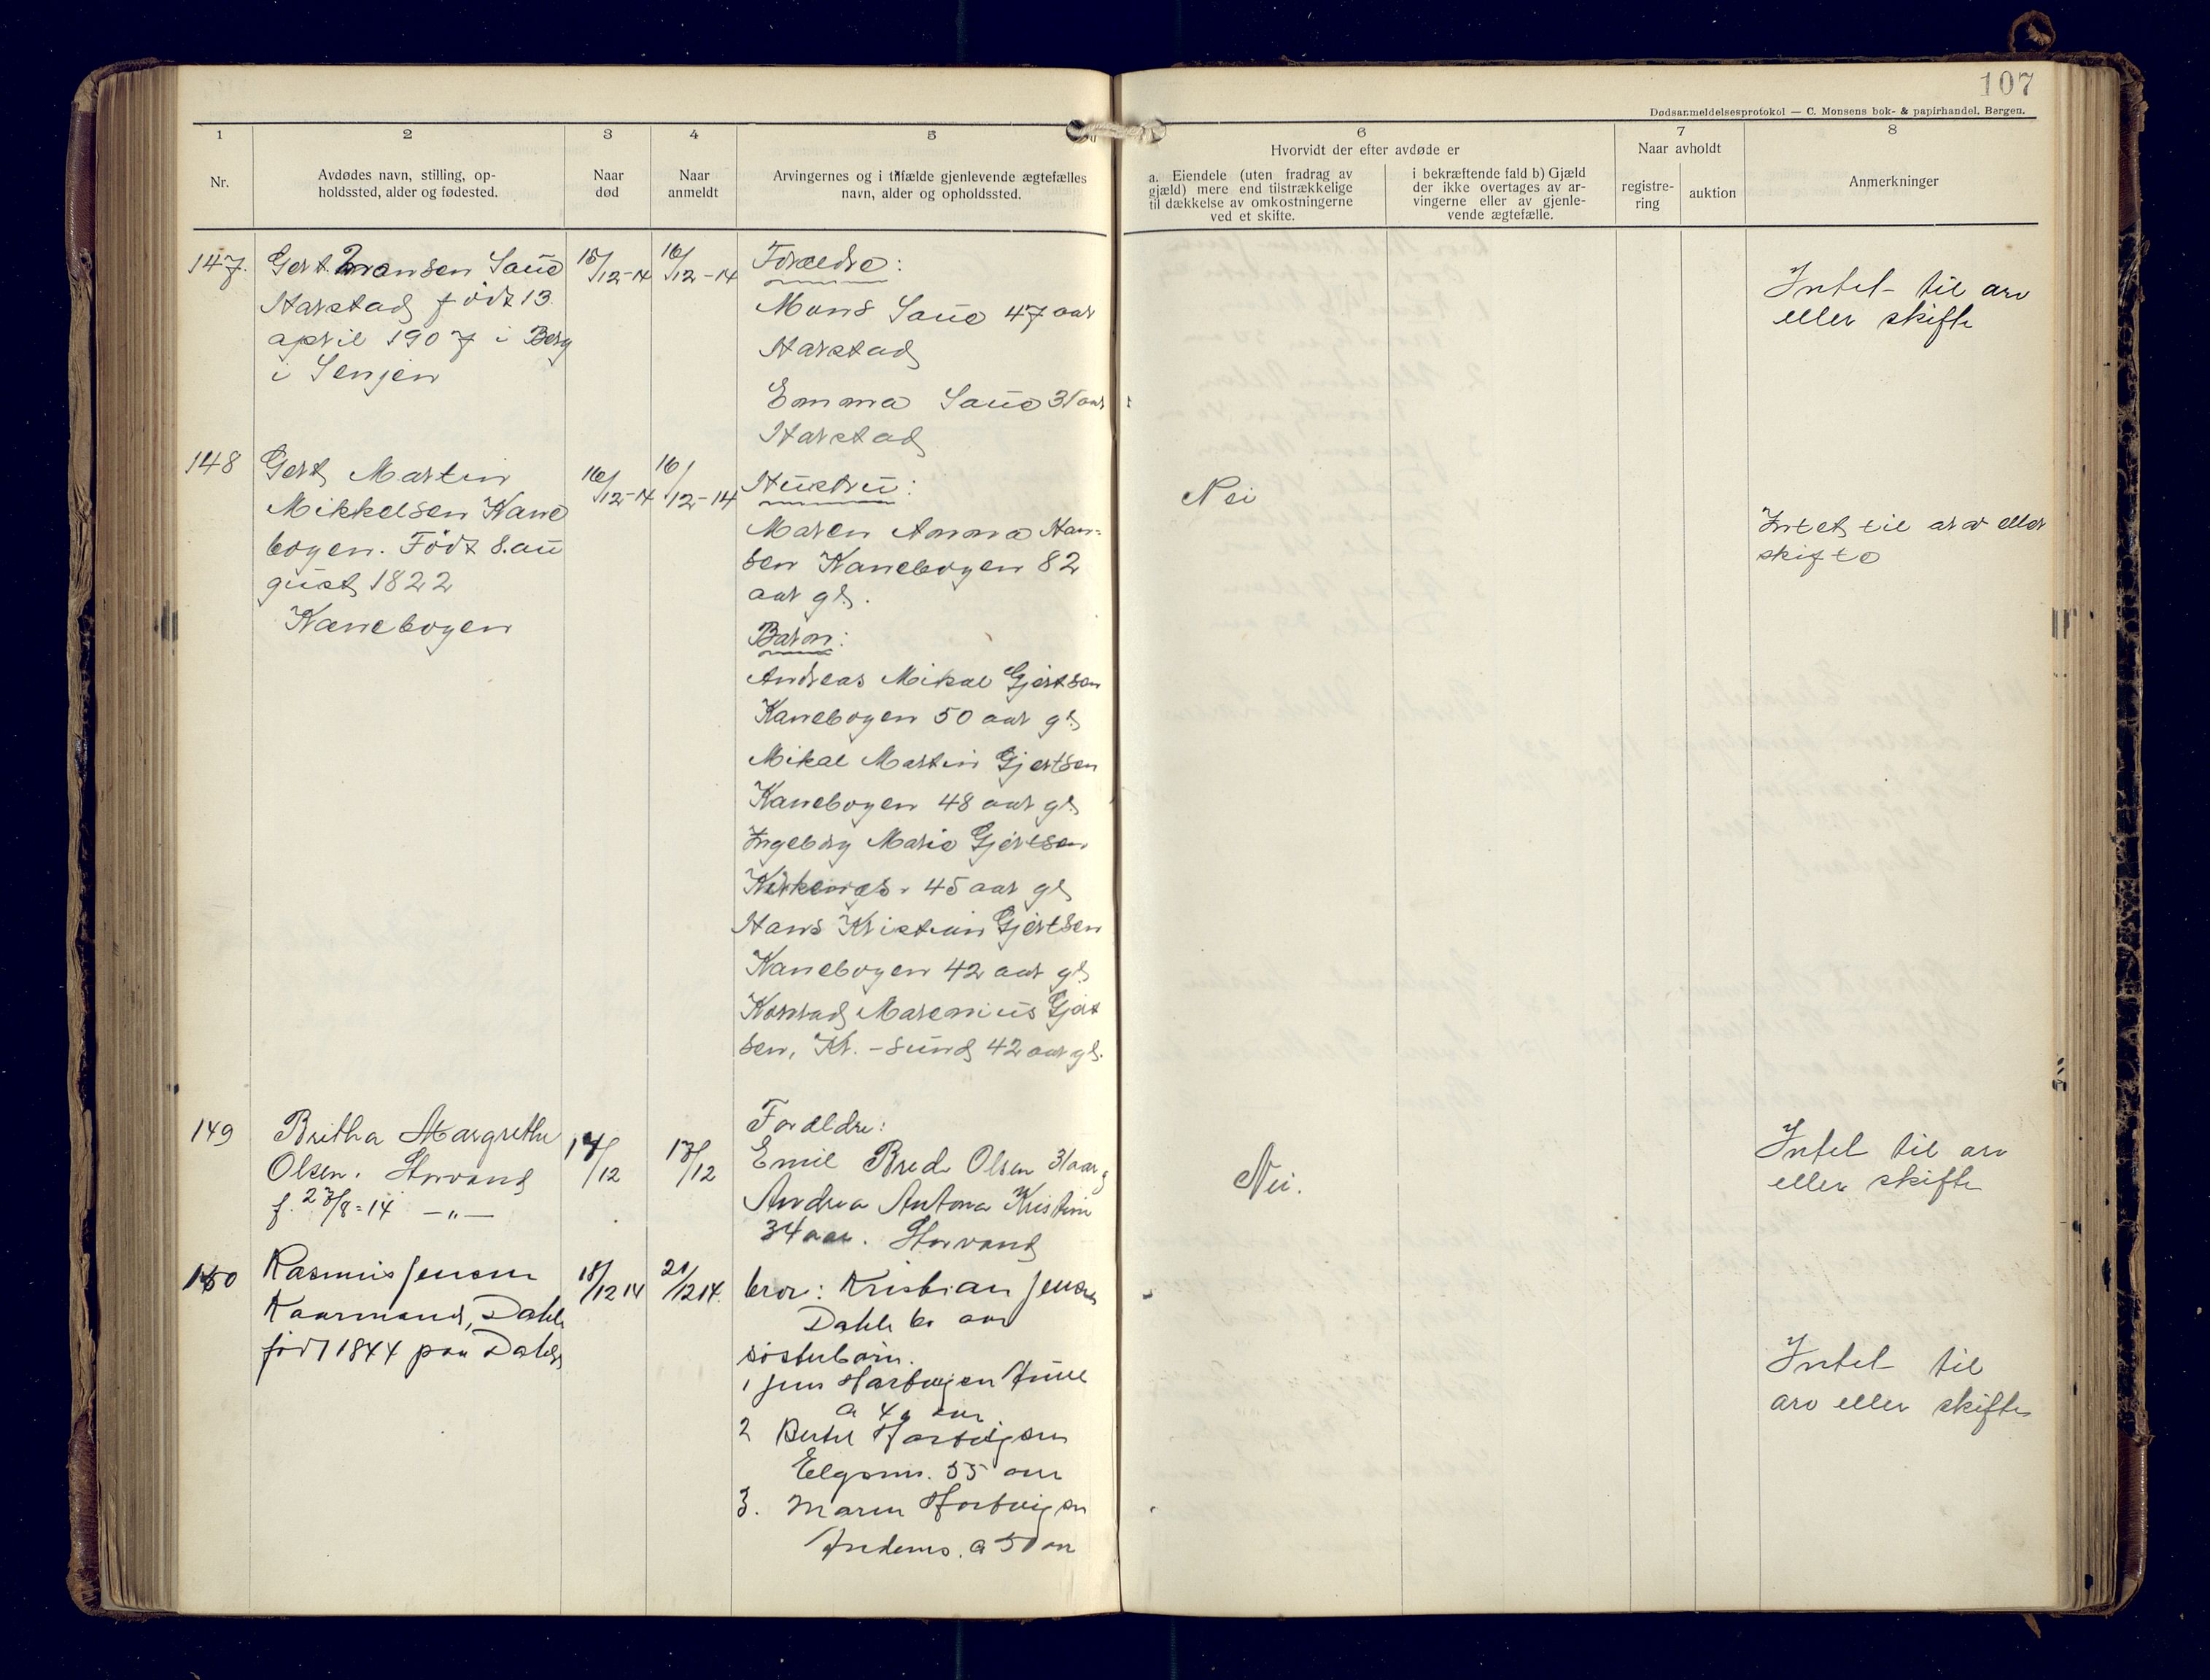 107
Dødsanmeldelsesprotokol — C. Monsens bok- & papirhandel. Bergen.
1 2 3 4 5 6 7 8
Nr.
Avdødes navn, stilling, op-
holdssted, alder og fødested.
Naar
død
Naar
anmeldt
Arvingernes og i tilfælde gjenlevende ægtefælles
navn, alder og opholdssted.
Hvorvidt der efter avdøde er
a. Eiendele (uten fradrag av
gjæld) mere end tilstrækkelige
til dækkelse av omkostningerne
ved et skifte.
i bekræftende fald b) Gjæld
der ikke overtages av ar-
vingerne eller av gjenle-
vende ægtefælle.
Naar avholdt
registre-
ring
auktion
Anmerkninger
147.
Gert Monsen Saue
Harstad født 13
april 1907 i Berg
i Senjen
15/12-14
16/12-14
Forældre:
Mons Saue 47 aar
Harstad
Emma Saue 31 aar
Harstad
Intet til arv
eller skifte
148
Gert Martin
Mikkelsen Kane
bogen. Født 8. au
gust 1822
Kanebogen
16/12-14
16/12-14
Hustru:
Maren Anna Han-
sen Kanebogen 82
aar gl.
Barn:
Andreas Mikal Gjertsen
Kanebogen 50 aar gl
Mikal Martin Gjertsen
Kanebogen 48 aar gl
Ingeborg Marie Gjertsen
Kirkenæs. 45 aar gl
Hans Kristian Gjertsen
Kanebogen 42 aar gl
Konrad Marenius Gjert
sen, Kr.-sund 42 aar gl.
Nei
Intet til arv eller
skifte
149
Britha Margrethe
Olsen. Storvand
f. 27/8-14 -"-
17/12
17/12
Forældre:
Emil Olsen 31 aar
Andrea Antona Kristine
34 aar. Storvand
Nei.
Intet til arv
eller skifte
150
Rasmus Jensen
Kaarmand, Dahle
født 1844 paa Dahle
18/12 14
21/12 14.
bror: Kristian Jensen
Dahle aar
søsterbørn.
1 Jens Hartvigsen
a aar
2 Hartvigsen
Elgsnes. 55 aar
3. Maren Hartvigsen
a 50 aar
Intet til
arv eller skifte